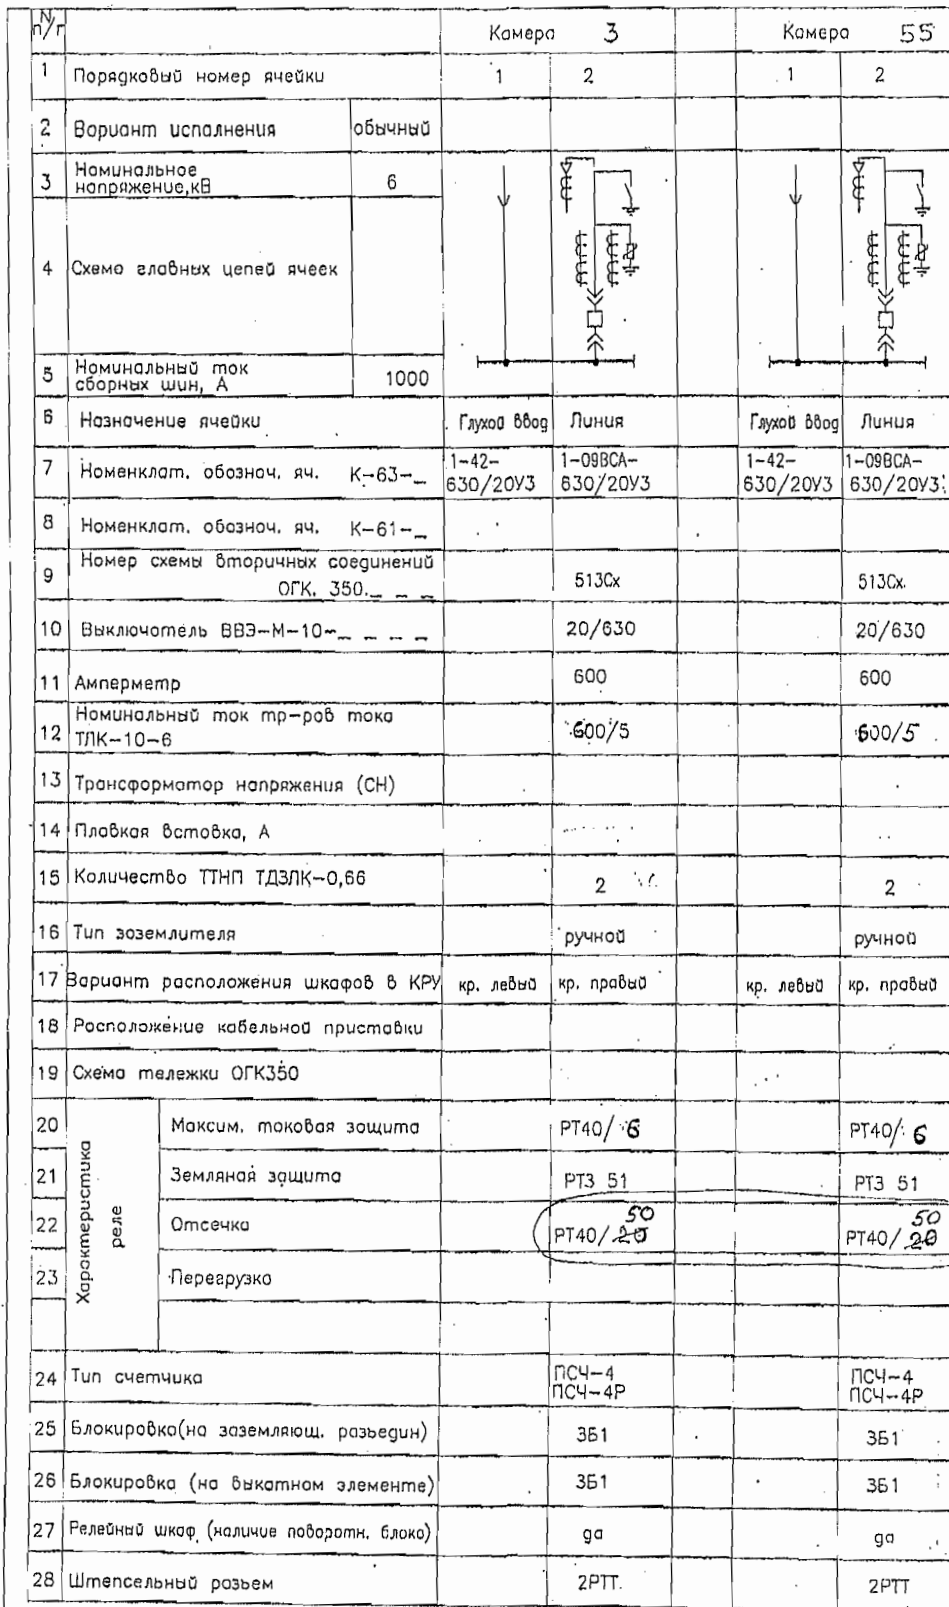 N п/г Камера 3 Камера 55
1 Порядковый номер ячейки 1 2 1 2
2 Вариант исполнения обычный
3 Номинальное напряжение,кВ 6
4 Схема главных цепей ячеек
5 Номинальный ток сборных шин, А 1000
6 Назначение ячейки Глухой ввод Линия Глухой ввод Линия
7 Номенклат. обознач. яч. К-63-_ 1-42-630/20У3 1-09ВСА-630/20У3 1-42-630/20У3 1-09ВСА-630/20У3
8 Номенклат. обознач. яч. К-61-_
9 Номер схемы вторичных соединений ОГК. 350._ _ _ 513Сх 513Сх.
10 Выключатель ВВЭ-М-10-_ _ _ _ 20/630 20/630
11 Амперметр 600 600
12 Номинальный ток тр-ров тока ТЛК-10-6 600/5 600/5
13 Трансформатор напряжения (СН)
14 Плавкая вставка, А
15 Количество ТТНП ТДЗЛК-0,66 2 2
16 Тип заземлителя ручной ручной
17 Вариант расположения шкафов в КРУ кр. левый кр. правый кр. левый кр. правый
18 Расположение кабельной приставки
19 Схема тележки ОГК350
Характеристика реле
20 Максим. токовая защита РТ40/ 6 РТ40/ 6
21 Земляная защита РТЗ 51 РТЗ 51
22 Отсечка РТ40/ 20 50 РТ40/ 20 50
23 Перегрузка
24 Тип счетчика ПСЧ-4 ПСЧ-4Р ПСЧ-4 ПСЧ-4Р
25 Блокировка(на заземляющ. разъедин) ЗБ1 ЗБ1
26 Блокировка (на выкатном элементе) ЗБ1 ЗБ1
27 Релейный шкаф (наличие поворотн. блока) да да
28 Штепсельный разъем 2РТТ. 2РТТ